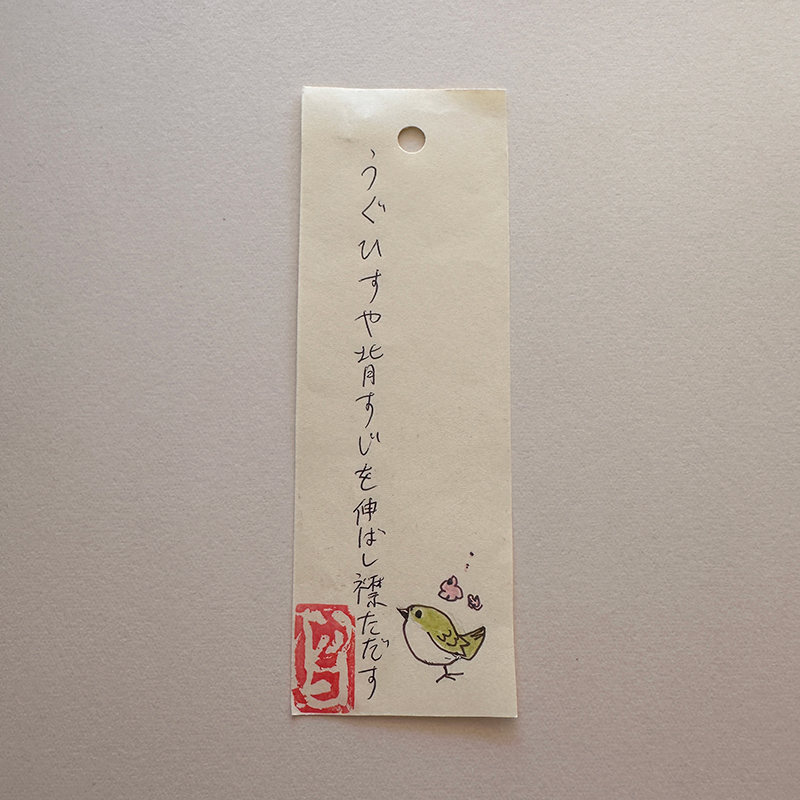 うぐひすや背すじを伸ばし襟ただす